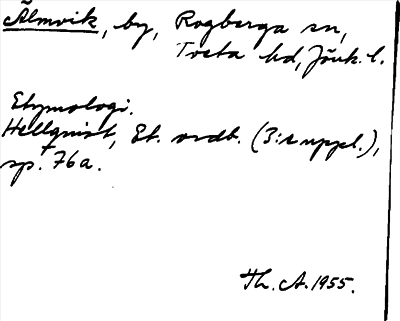 Älmvik, by, Rogberga sn,
Tveta hd, Jönk. l.
Etymologi.
Hellquist, Et. ordb. (3:e uppl.),
sp. 76a.
Th. A. 1955.